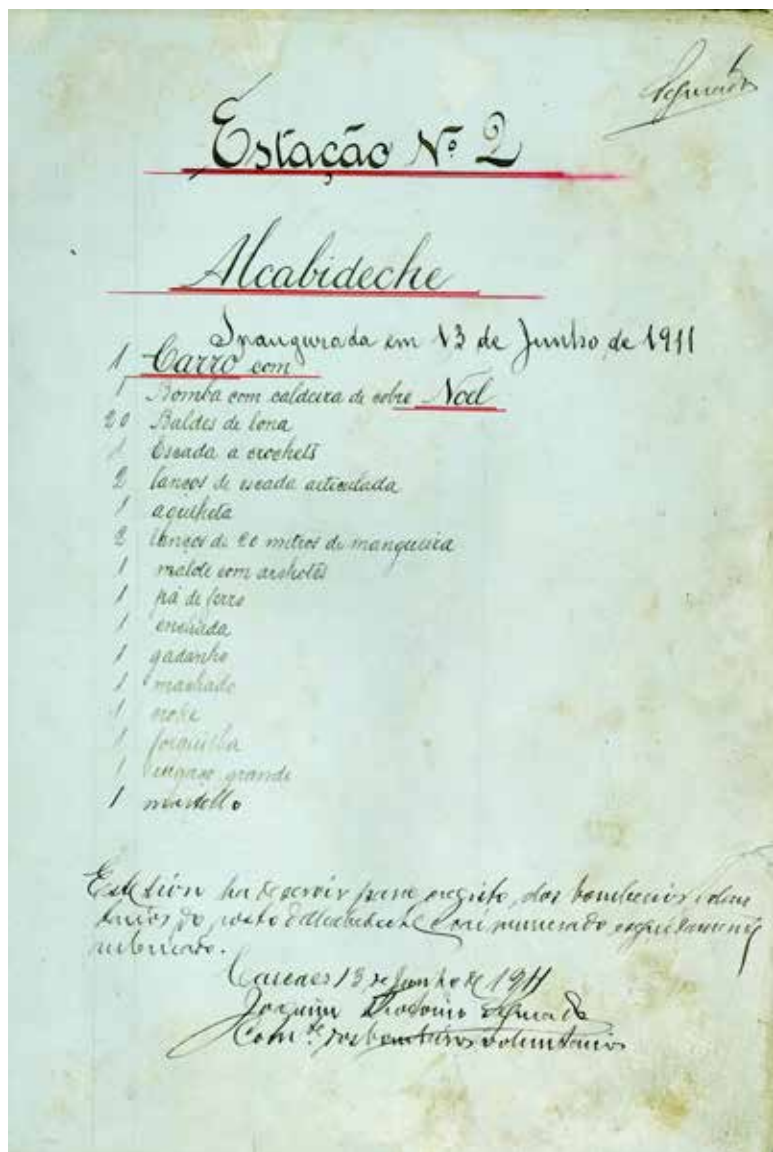 1
Segurado
Estação Nº 2
Alcabideche
Inaugurada em 13 de Junho de 1911
1 Carro com
1 Bomba com caldeira de cobre Noel
20 Baldes de lona
1 Escada a crochets
2 lanços de escada articulada
1 agulheta
2 lanços de 20 metros de mangueira
1 malote com archotes
1 pá de ferro
1 enchada
1 gadanho
1 machado
1 croke
1 forquilha
1 engaço grande
1 martello
Este livro ha de servir para registo dos bombeiros volun
tarios do posto d'Alcabideche e vai numerado e
rubricado.
Cascaes 13 de Junho de 1911
Joaquim Theotonio Segurado
Com.te dos bombeiros voluntarios